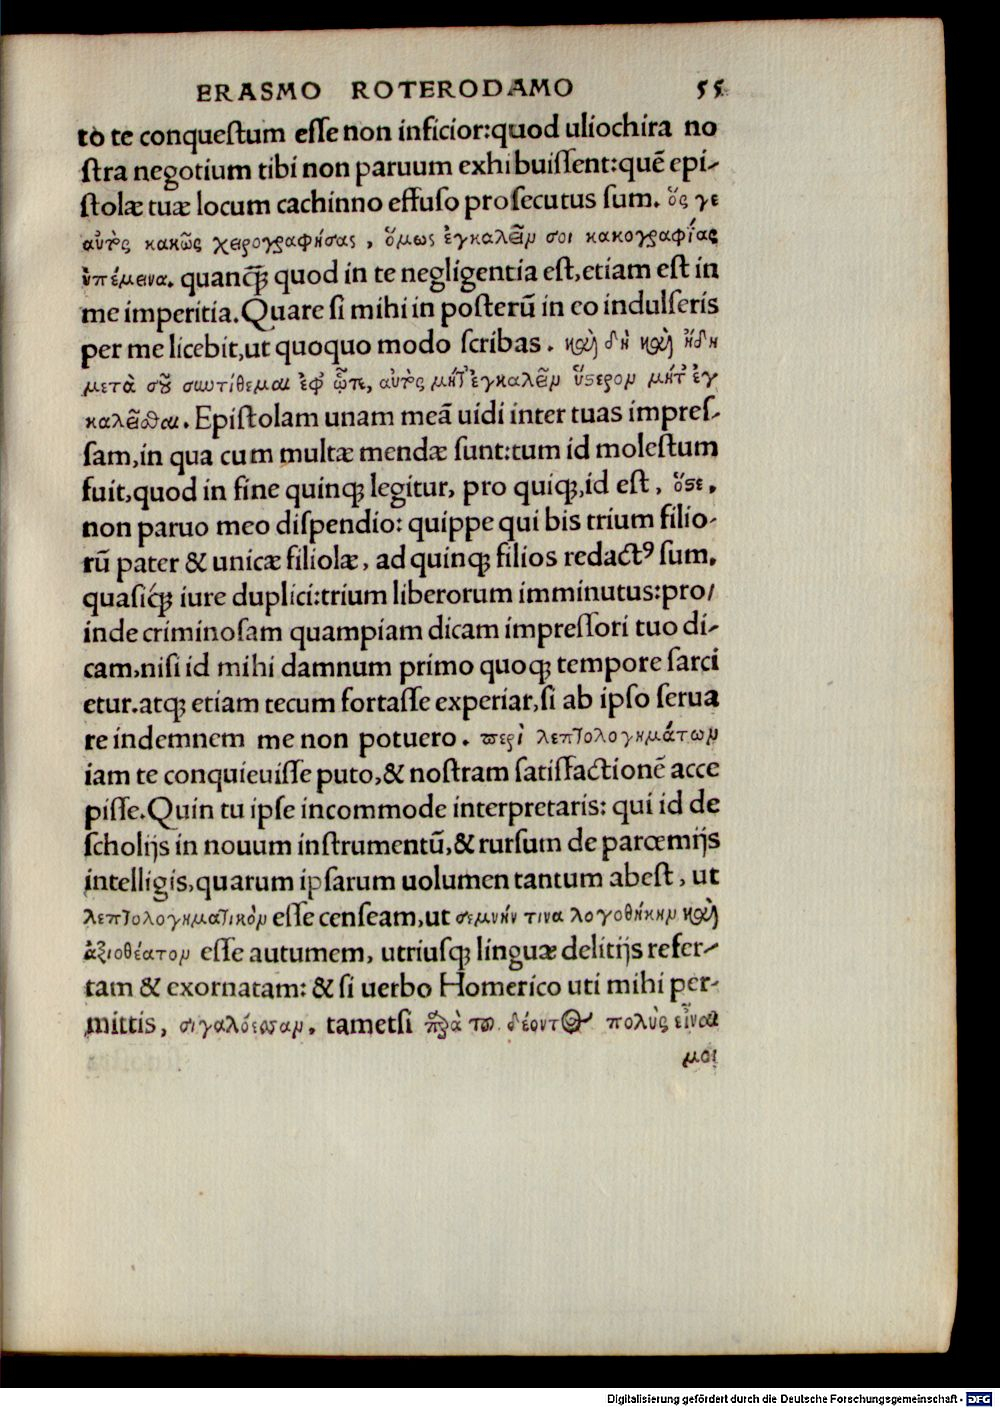 ERASMO ROTERODAMO 55
to te conquestum esse non inficior:quod uliochira no
stra negotium tibi non paruum exhibuissent:quē epi-
stolæ tuæ locum cachinno effuso prosecutus sum. ὅς γε
αὐτὸς κακῶς χειρογραφήσας, ὅμως ἐγκαλεῖν σοι κακογραφίας
ὑπέμεινα. quanq̃ quod in te negligentia est,etiam est in
me imperitia.Quare si mihi in posterū in eo indulseris
per me licebit,ut quoquo modo scribas. καὶ δὴ καὶ ἤδη
μετὰ σοῦ συντίθεμαι ἐφ' ᾧτε, αὐτὸς μήτ' ἐγκαλεῖν ὕστερον μήτ' ἐγ
καλεῖσθαι. Epistolam unam meā uidi inter tuas impres-
sam,in qua cum multæ mendæ sunt:tum id molestum
fuit,quod in fine quinqꝫ legitur, pro quiqꝫ,id est, ὅστε,
non paruo meo dispendio: quippe qui bis trium filio-
rū pater & unicæ filiolæ, ad quinqꝫ filios redactꝰ sum,
quasiq́ꝫ iure duplici:trium liberorum imminutus:pro/
inde criminosam quampiam dicam impressori tuo di-
cam,nisi id mihi damnum primo quoqꝫ tempore sarci
etur.atqꝫ etiam tecum fortasse experiar,si ab ipso serua
re indemnem me non potuero. περὶ λεπτολογημάτων
iam te conquieuisse puto,& nostram satisfactionē acce
pisse.Quin tu ipse incommode interpretaris: qui id de
scholijs in nouum instrumentū,& rursum de parœmijs
intelligis,quarum ipsarum uolumen tantum abest, ut
λεπτολογηματικὸν esse censeam,ut σεμνήν τινα λογοθήκην καὶ
ἀξιοθέατον esse autumem, utriusqꝫ linguæ delitijs refer-
tam & exornatam: & si uerbo Homerico uti mihi per-
mittis, σιγαλόεσσαν. tametsi παρὰ τοῦ δέοντος πολὺς εἶναί
μοι
Digitalisierung gefördert durch die Deutsche Forschungsgemeinschaft - DFG